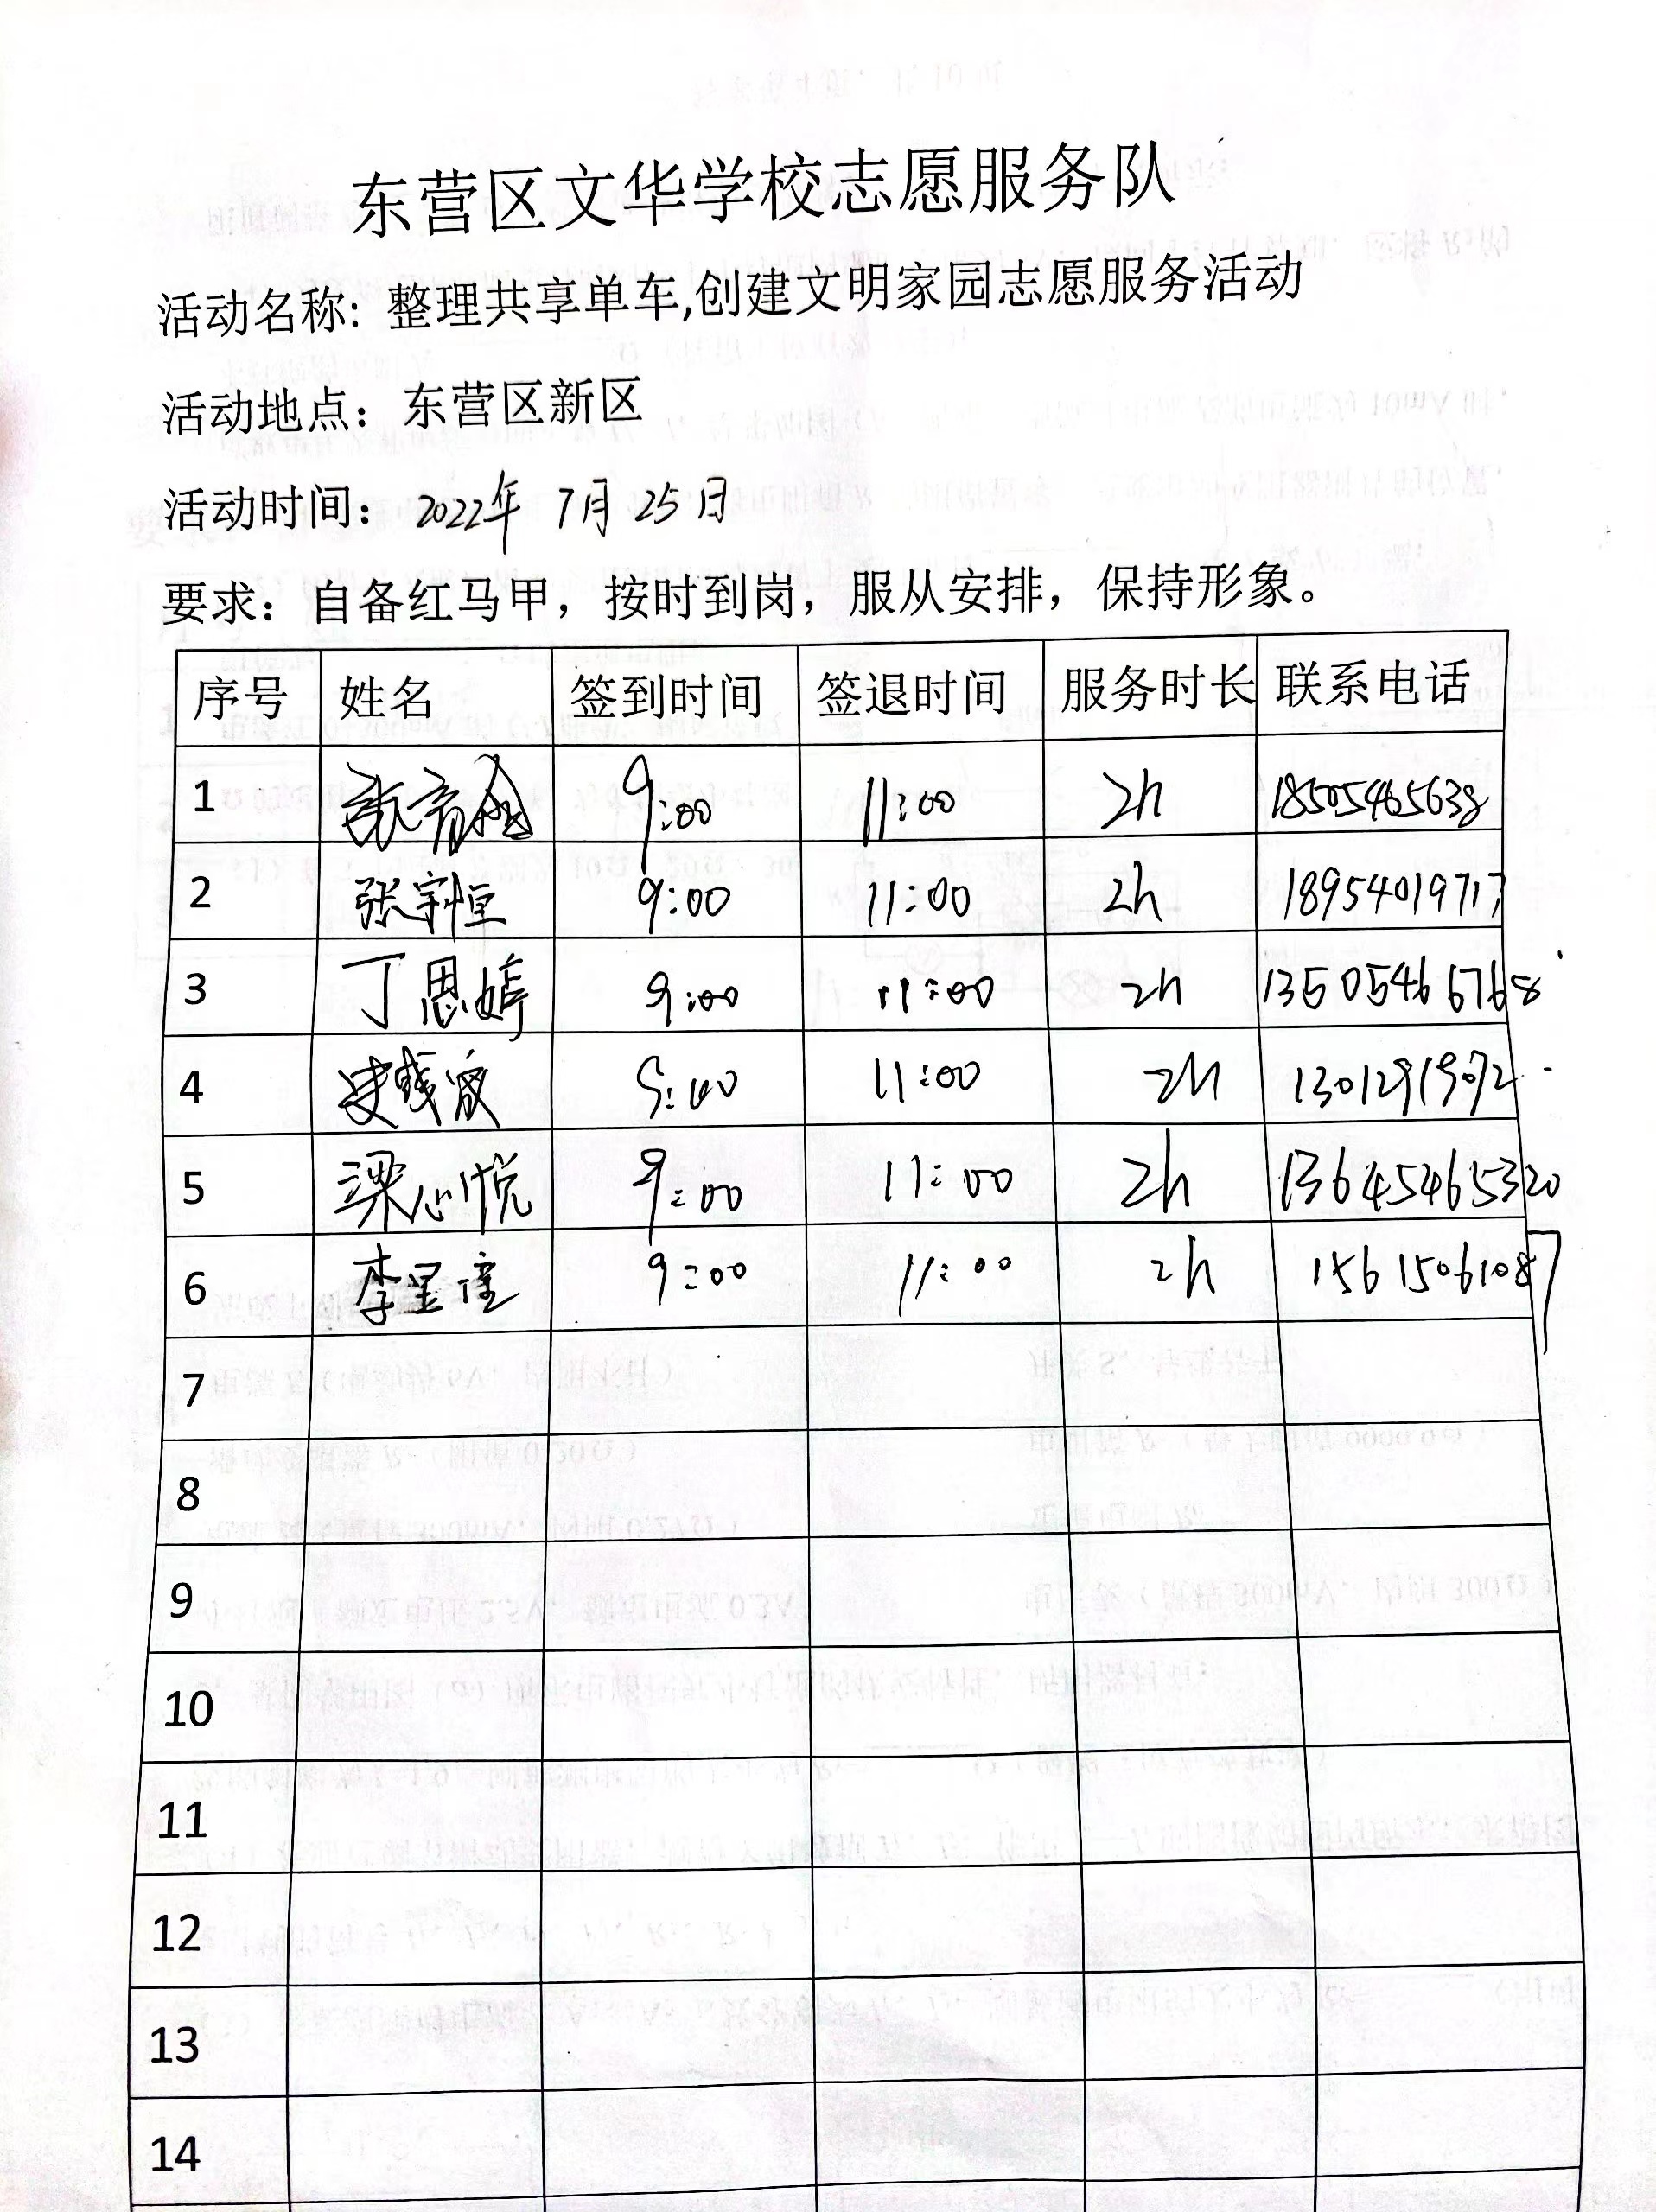 东营区文华学校志愿服务队
活动名称: 整理共享单车,创建文明家园志愿服务活动
活动地点: 东营区新区
活动时间: 2022年 7月 25日
要求: 自备红马甲，按时到岗，服从安排，保持形象。
序号 姓名 签到时间 签退时间 服务时长 联系电话
1 9:00 11:00 2h 18505465638
2 张宇恒 9:00 11:00 2h 18954019717
3 丁恩婷 9:00 11:00 2h 13505466768
4 9:00 11:00 2h 13012919072
5 梁心悦 9:00 11:00 2h 13645465320
6 李星 9:00 11:00 2h 15615061087
7
8
9
10
11
12
13
14